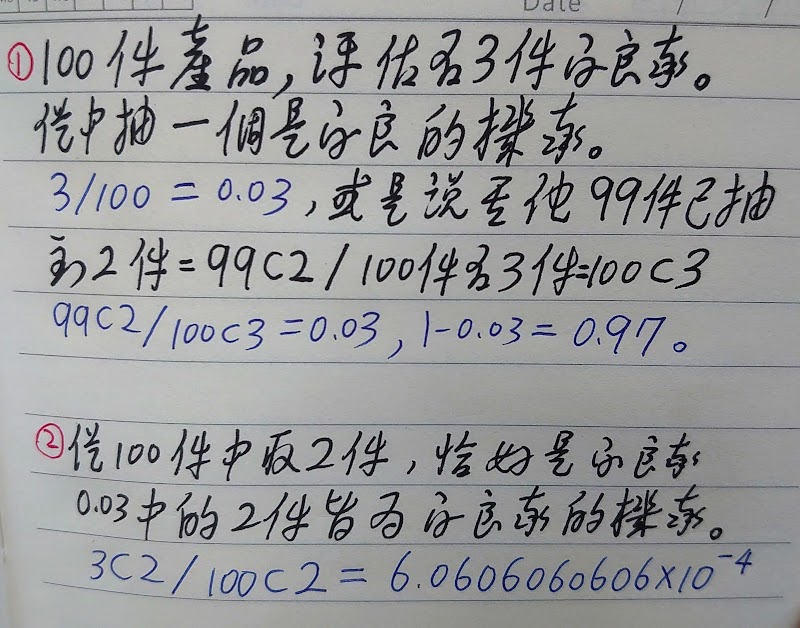 Date / /
①100件產品,評估有3件不良率。
從中抽一個是不良的機率。
3/100 = 0.03,或是說其他99件已抽
到2件=99C2/100件有3件=100C3
99C2/100C3=0.03,1-0.03=0.97。
②從100件中取2件,恰好是不良率
0.03中的2件皆為不良率的機率。
3C2/100C2=6.0606060606×10⁻⁴